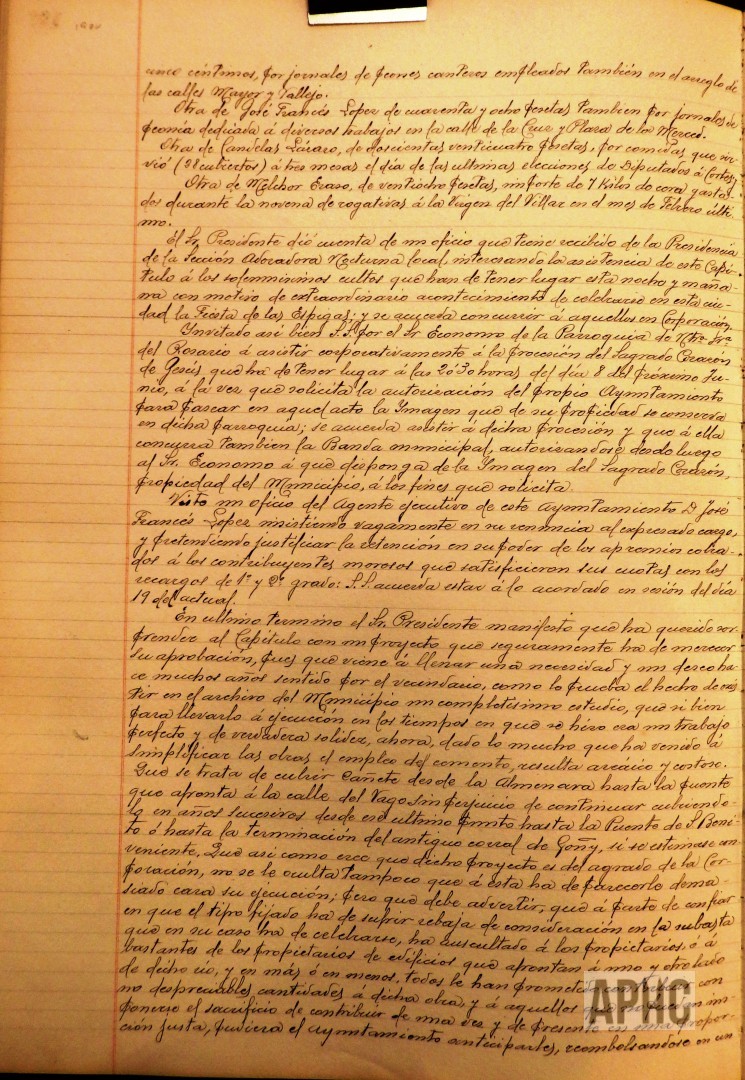 once céntimos, por jornales de peones canteros empleados también en el arreglo de
las calles Mayor y Tallejo.
Otra de José Francés López de cuarenta y ocho pesetas tambien por jornales de
peonia dedicada á diversos trabajos en la calle de la Cruz y Plaza de la Merced.
Otra de Candelas Lázaro, de doscientas venticuatro pesetas, por comidas que sir-
vió (28 cubiertos) á tres mesas el día de las ultimas elecciones de Diputados á Cortes, y
Otra de Melchor Eraso, de ventiocho pesetas, importe de 7 kilos de cera gasta-
dos durante la novena de rogativas á la Virgen del Villar en el mes de Febrero últi-
mo.
El Sr. Presidente dió cuenta de un oficio que tiene recibido de la Presidencia
de la Sección Adoradora Nocturna local, interesando la asistencia de este Capí-
tulo á los solemnisimos cultos que han de tener lugar esta noche y maña-
na con motivo de extraordinario acontecimiento de celebrarse en esta ciu-
dad la Fiesta de las Espigas; y se acuerda concurrir á aquellos en Corporación.
Invitado asi bien S.S. por el Sr Economo de la Parroquia de Ntra. Sra.
del Rosario á asistir corporativamente á la procesión del Sagrado Corazon
de Gesús que ha de tener lugar á las 20'30 horas del día 8 del próximo Ju-
nio, á la vez que solicita la autorización del propio Ayuntamiento
para pasear en aquel acto la Ymagen que de su propiedad se conserva
en dicha parroquia; se acuerda asistir á dicha procesión y que á ella
concurra tambien la Banda municipal, autorizandose desde luego
al Sr. Economo á que disponga de la Ymagen del Sagrado Corazón,
propiedad del Municipio, á los fines que solicita.
Visto un oficio del Agente ejecutivo de este Ayuntamiento D. José
Francés López insistiendo vagamente en su renuncia al expresado cargo,
y pretendiendo justificar la retención en su poder de los apremios cobra-
dos á los contribuyentes morosos que satisficieron sus cuotas con los
recargos de 1º y 2º grado: S.S. acuerda estar á lo acordado en sesión del día
19 del actual.
En ultimo termino el Sr. Presidente manifestó que ha querido sor-
prender al Capítulo con un proyecto que seguramente ha de merecer
su aprobación, pues que viene á llenar una necesidad y un deseo ha-
ce muchos años sentido por el vecindario, como lo prueba el hecho de exis-
tir en el archivo del Municipio un completisimo estudio, que si bien
para llevarlo á ejecución en los tiempos en que se hizo era un trabajo
perfecto y de verdadera solidez, ahora, dado lo mucho que ha venido á
simplificar las obras el empleo del cemento, resulta arcáico y costoso.
Que se trata de cubrir Cañete desde la Almenara hasta la puente
que apronta á la calle del Vago sin perjuicio de continuar cubriendo-
lo en años sucesivos desde ese ultimo punto hasta la Puente de S. Beni-
to ó hasta la terminación del antiguo corral de Goñy, si se estimase con-
veniente. Que asi como cree que dicho proyecto es del agrado de la Cor-
poración, no se le oculta tampoco que á esta ha de parecerle dema-
siado cara su ejecución; pero que debe advertir, que á parte de confiar
en que el tipo fijado ha de sufrir rebaja de consideración en la subasta
que en su caso ha de celebrarse, ha auscultado á los propietarios, ó á
bastantes de los propietarios de edificios que aprontan á uno y otro lado
de dicho rio, y en más ó en menos, todos le han prometido contribuir con
no despreciables cantidades á dicha obra, y á aquellos que no puedan im-
ponerse el sacrificio de contribuir de una vez y de presente en una propor-
ción justa, pudiera el Ayuntamiento anticiparles, reembolsandose en un
APHC